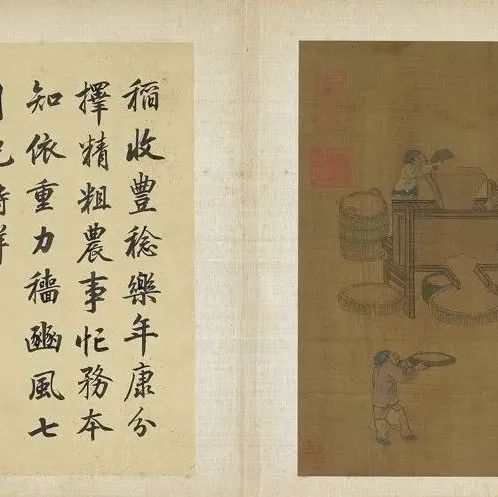 稻收豐稔樂年康分
擇精粗農事忙務本
知依重力穡豳風七
月